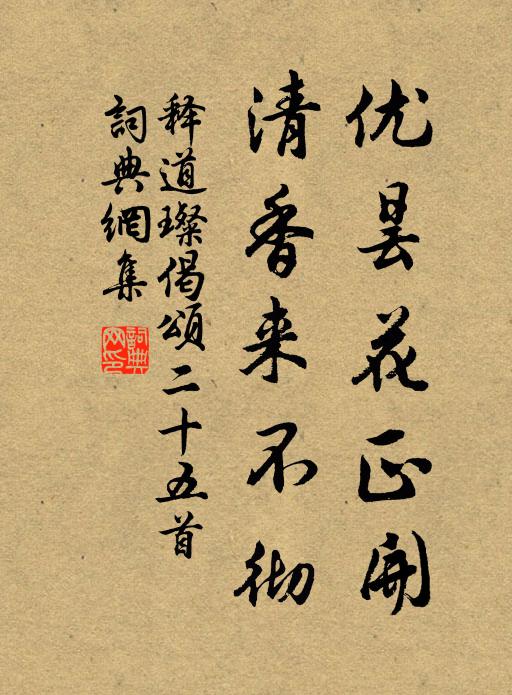 优昙花正开
清香来不彻
释道璨偈颂二十五首
詞典網集
詞典網印